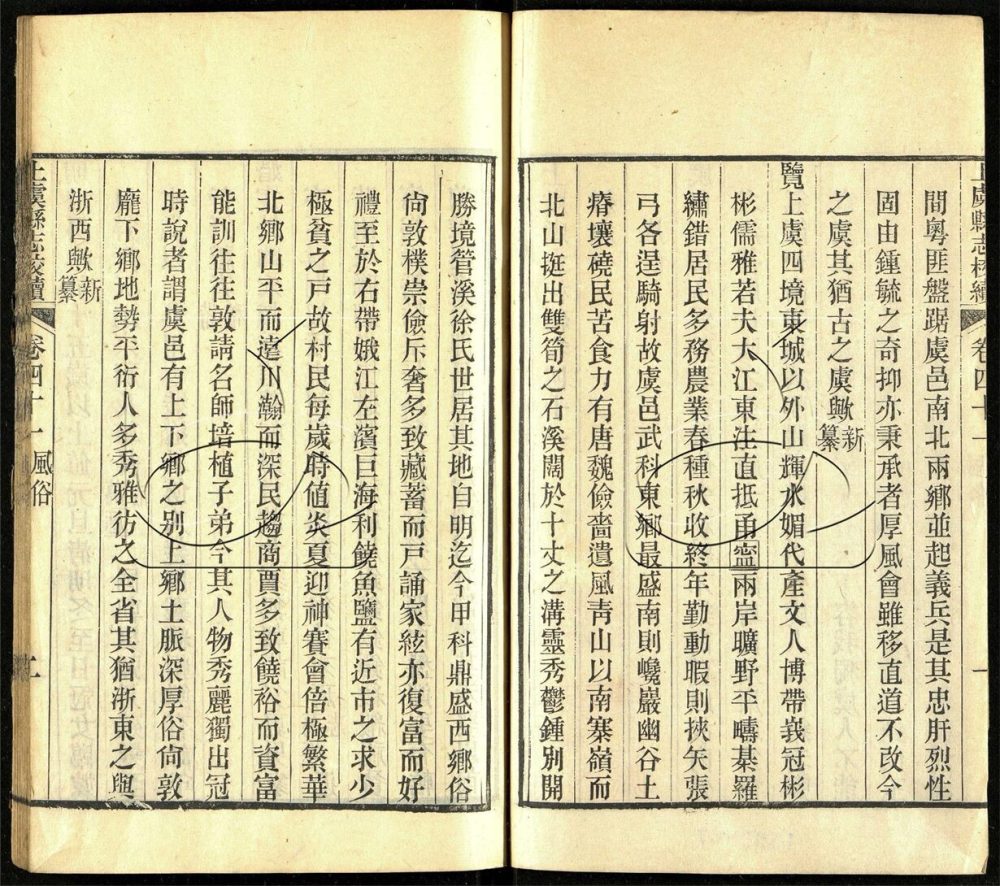 上虞縣志校續 卷四十一
間粵匪盤踞虞邑南北兩鄉並起義兵是其忠肝烈性
固由鍾毓之奇抑亦秉承者厚風會雖移直道不改今
之虞其猶古之虞歟新纂
覽上虞四境東城以外山輝水媚代產文人博帶峩冠彬
彬儒雅若夫大江東注直抵甬寍兩岸曠野平疇棊羅
繡錯居民多務農業春種秋收終年勤動暇則挾矢張
弓各逞騎射故虞邑武科東鄉最盛南則巉巖幽谷土
瘠壤磽民苦食力有唐魏儉嗇遺風靑山以南寨嶺而
北山挺出雙筍之石溪闊於十丈之溝靈秀鬱鍾別開
勝境管溪徐氏世居其地自明迄今甲科鼎盛西鄉俗
尙敦樸崇儉斥奢多致藏蓄而戸誦家絃亦復富而好
禮至於右帶娥江左濱巨海利饒魚鹽有近市之求少
極貧之戸故村民每歲時値炎夏迎神賽會倍極繁華
北鄉山平而遠川瀚而深民趨商賈多致饒裕而資富
能訓往往敦請名師培植子弟今其人物秀麗獨出冠
時說者謂虞邑有上下鄉之别上鄉土脈深厚俗尙敦
龐下鄉地勢平衍人多秀雅彷之全省其猶浙東之與
浙西歟新纂
上虞縣志校續 卷四十一 風俗 二